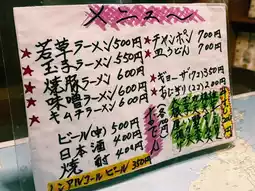 メニュー
★若草ラーメン 500円
★玉子ラーメン 550円
★焼豚ラーメン 600円
★味噌ラーメン 600円
★キムチラーメン 600円
ビール(中) 500円
日本酒 400円
焼酎 400円
ノンアルコールビール 350円
★チャンポン 700円
★皿うどん 700円
★ギョーザ(7コ) 350円
★おにぎり(2コ) 200円
おでん